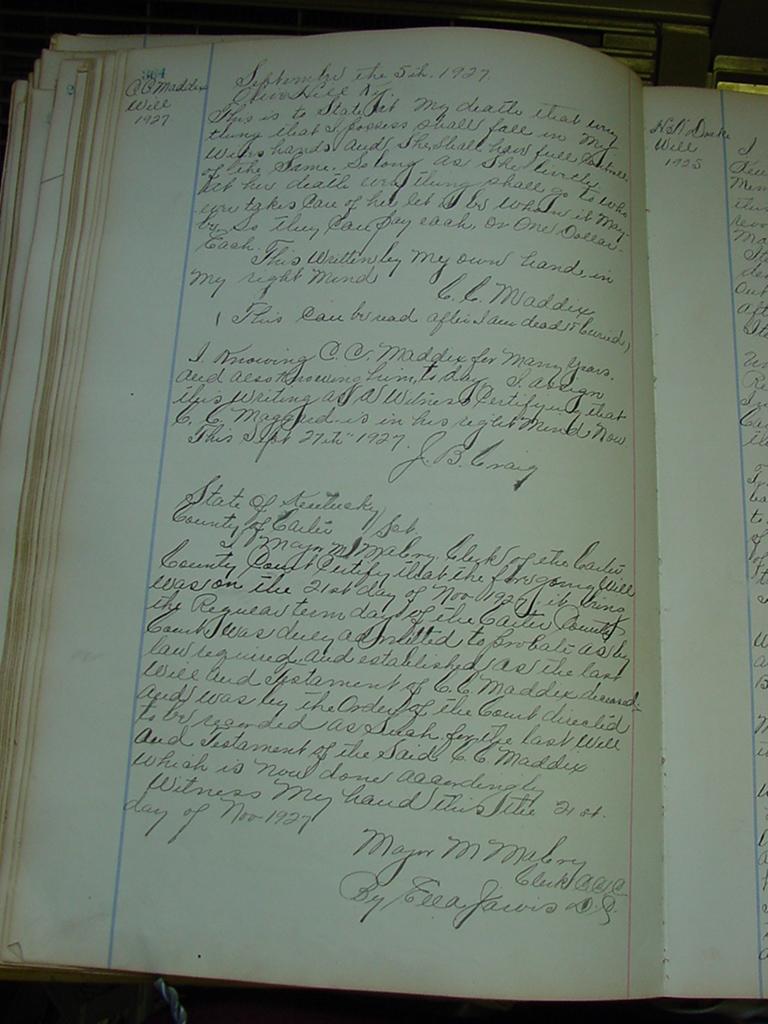 364
C C Maddix
Will
1927
September the 5th. 1927
Olive Hill Ky.
This is to State at My death that every
thing that I possess shall fall in My
Wifes hands and She Shall have full Controll
of the Same. So long as She lives
At her death every thing shall go to who
ever takes Care of her let it be whom it May
be. So they Can pay each, or One Dollar
Each.
This written by My own hand, in
My right Mind
C. C. Maddix
( This Can be read after I am dead & buried)
I Knowing C. C. Maddix for Many Years.
and also Knowing him to day, I assign
this Writing as a Witness Certifying that
C. C. is in his right Mind Now
This Sept 27th 1927.
J. B. Craig
State of Kentucky
County of Carter Sct.
I Major M Mabry, Clerk of the Carter
County Court Certify that the foregoing Will
was on the 21st day of Nov 1927, it being
the Regular term day of the Carter County
Court, was duly admitted to probate as by
law required, and established as the last
Will and Testament of C. C. Maddix deceased
and was by the Order of the Court directed
to be recorded as Such for the last Will
and Testament of the Said C C Maddix
which is now done accordingly
Witness My hand this the 21 st.
day of Nov 1927
Major M Mabry
Clerk C.C.C.
By Ella Jarvis D.C.
Will
1925